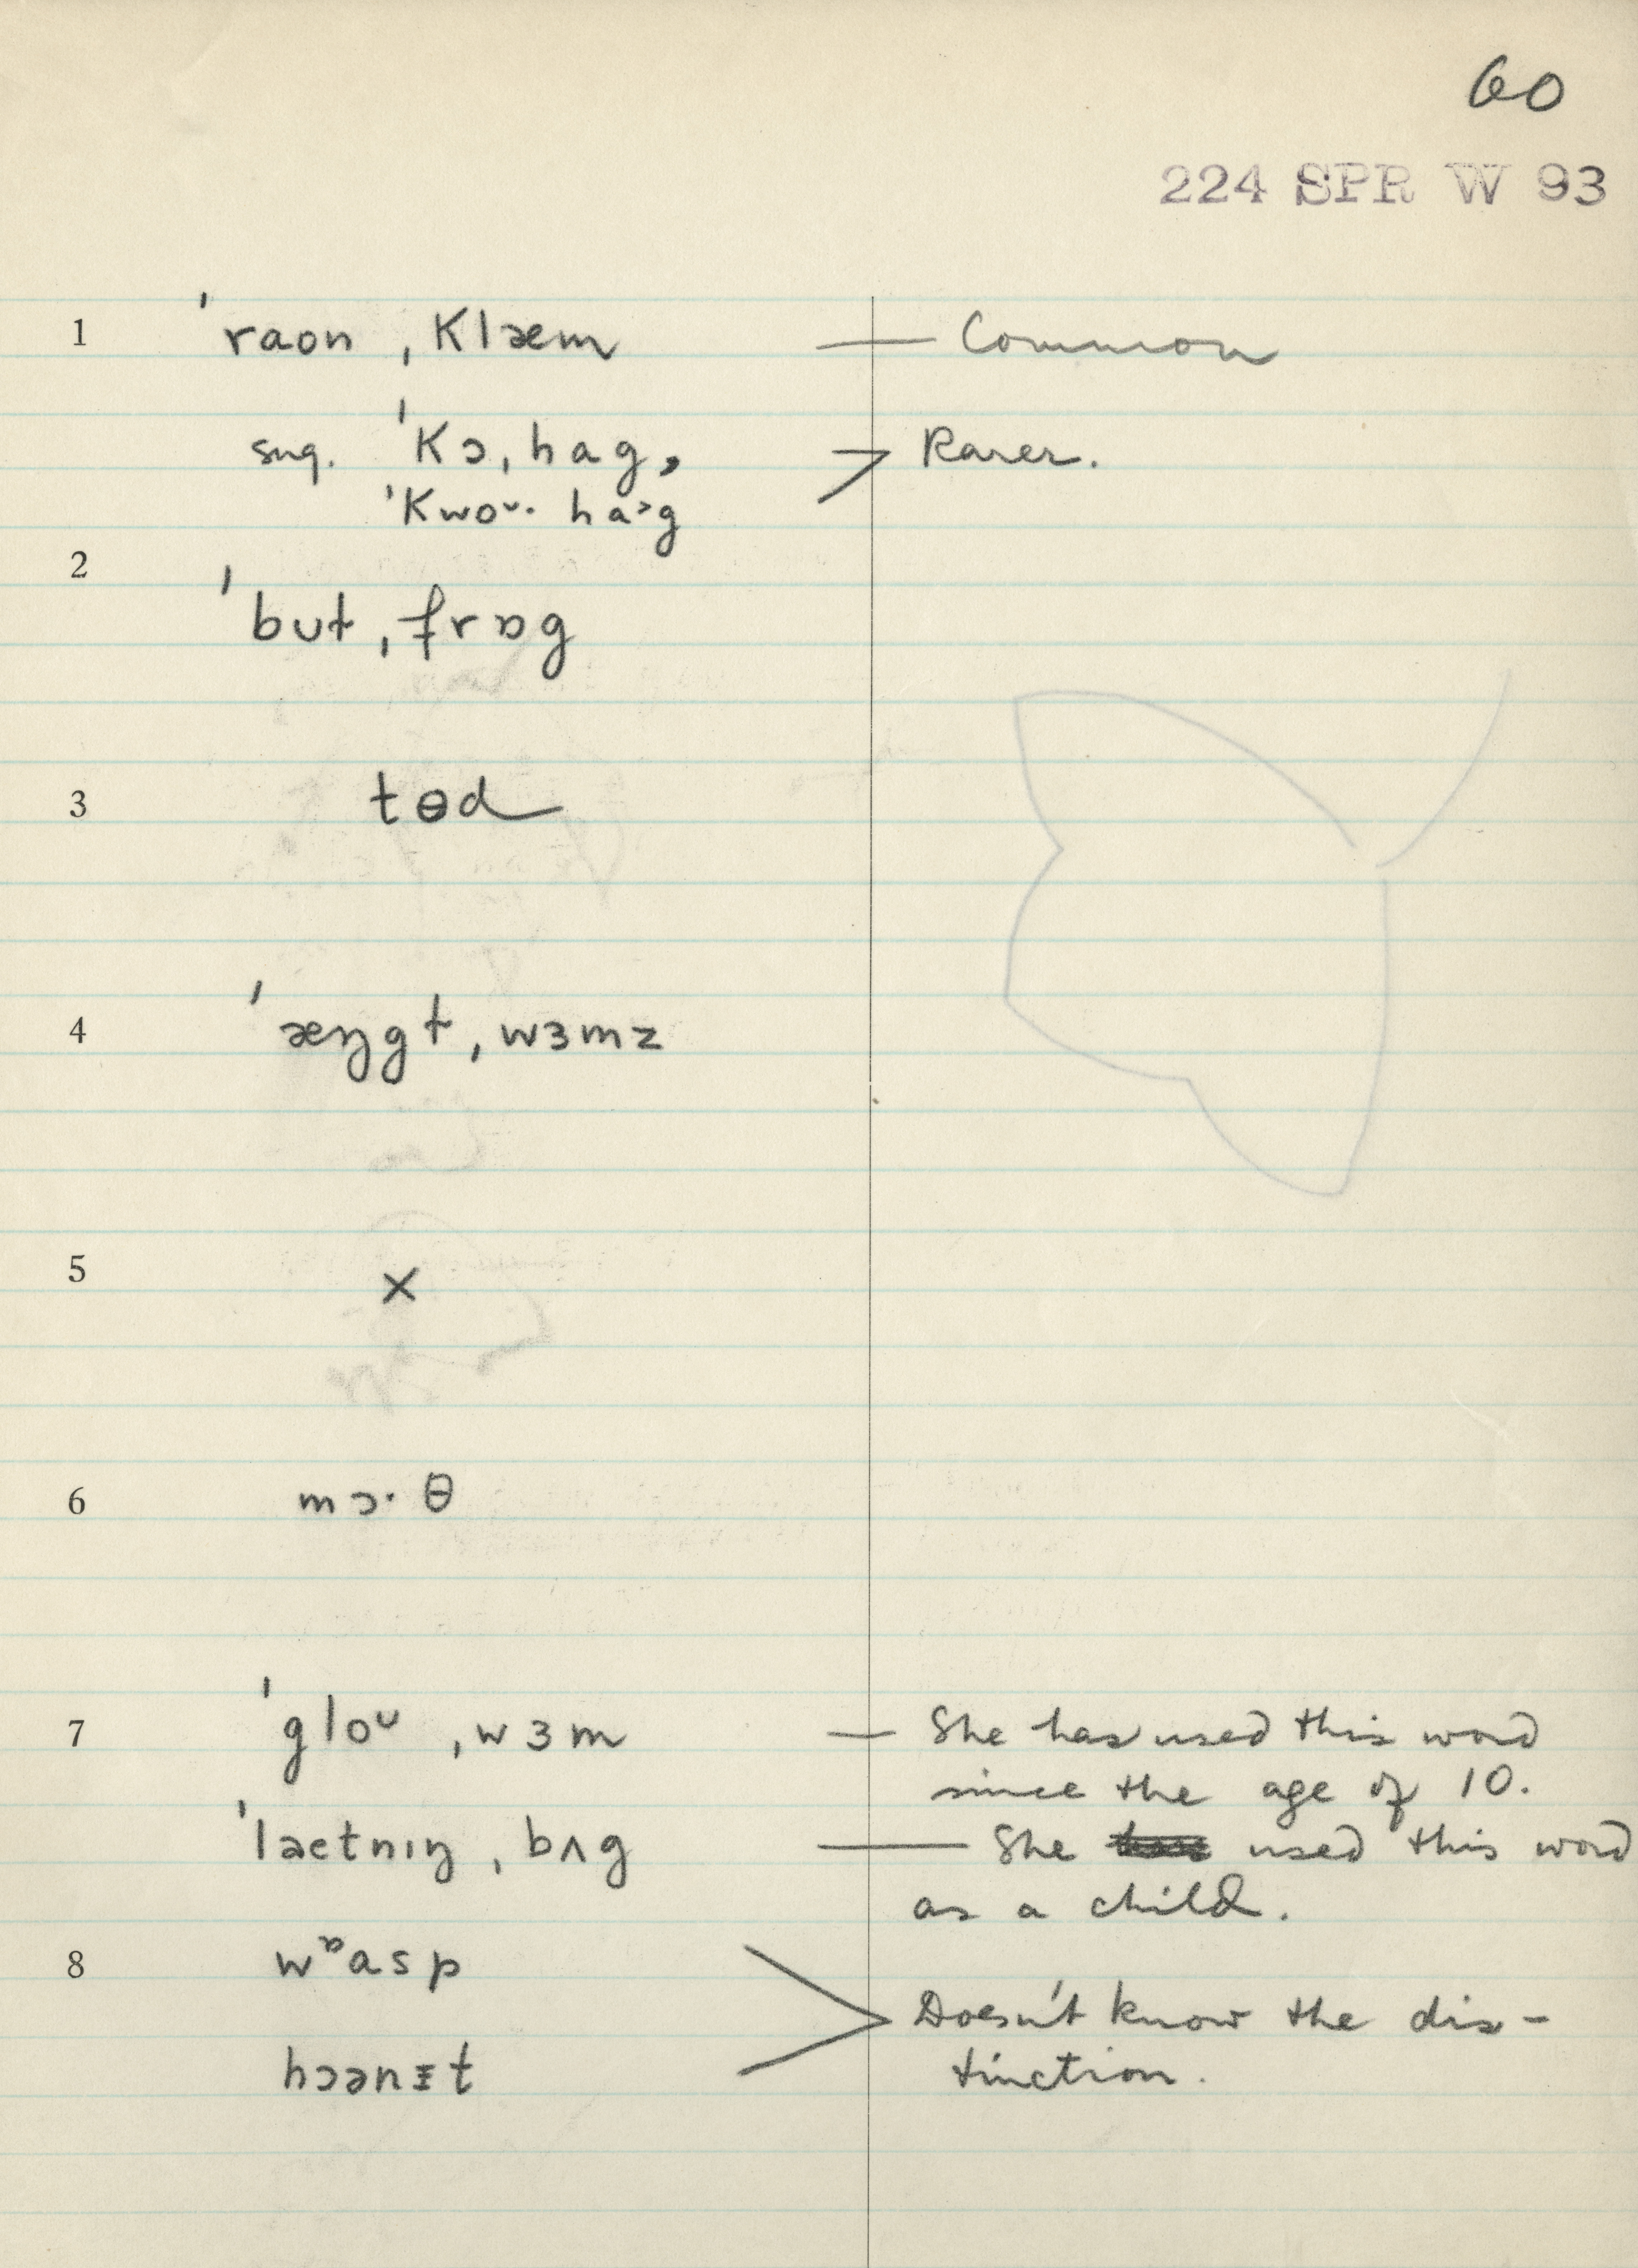 60
224 SPR W 93
1 ˈraon ˌklæm — Common
sug. ˈkɔˌhag, Rarer.
ˈkwoᴜ· ha˃g
2
ˈbut ˌfrɒg
3 tɵd
4 ˈæŋgɫ ˌwɜmz
5 ×
6 mɔ·θ
7 ˈgloᴜ ˌwɜm — She has used this word
since the age of 10.
ˈlaetnɪŋ ˌbʌg — She used this word
as a child.
8 wᶛasp
Doesn't know the dis-
hɔənɪt tinction.